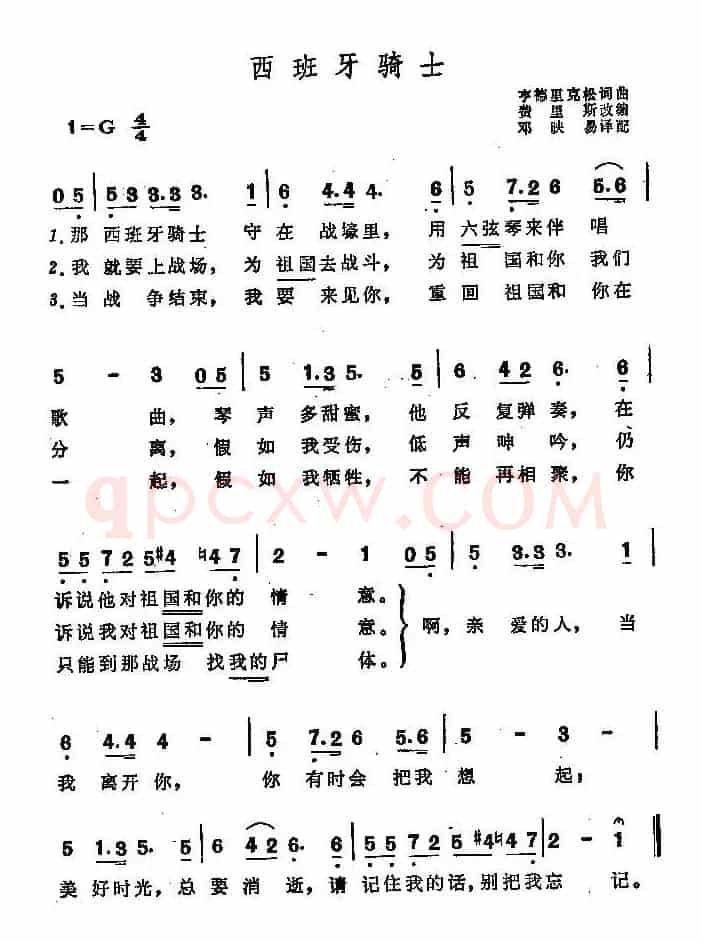 西班牙骑士
亨德里克松词曲
费里斯改编
邓映易译配
1=G 4/4
0 5 | 5 3 3.3 3. 1 | 6 4.4 4. 6 | 5 7.2 6 5.6 |
1.那 西班牙骑士 守在 战壕里, 用六弦琴来伴 唱
2.我 就要上战场, 为祖国去战斗, 为祖 国和你 我们
3.当 战 争结束, 我要 来见你, 重回 祖国和 你在
5 - 3 0 5 | 5 1.3 5. 5 | 6 4 2 6. 6 |
歌 曲, 琴声 多甜蜜, 他反 复弹奏, 在
分 离, 假如 我受伤, 低声 呻吟, 仍
一 起, 假如 我牺牲, 不能 再相聚, 你
5 5 7 2 5 #4 ♮4 7 | 2 - 1 0 5 | 5 3.3 3. 1 |
诉说他对祖国和你的 情 意。
诉说我对祖国和你的 情 意。 啊,亲 爱的人, 当
只能到那战场 找我的尸 体。
6 4.4 4 - | 5 7.2 6 5.6 | 5 - 3 - |
我 离开你, 你 有时会 把我 想 起;
5 1.3 5. 5 | 6 4 2 6. 6 | 5 5 7 2 5 #4 ♮4 7 | 2 - 1 ‖
美 好时光, 总 要 消 逝, 请 记住我的话,别把我忘 记。
qpcxw.COM